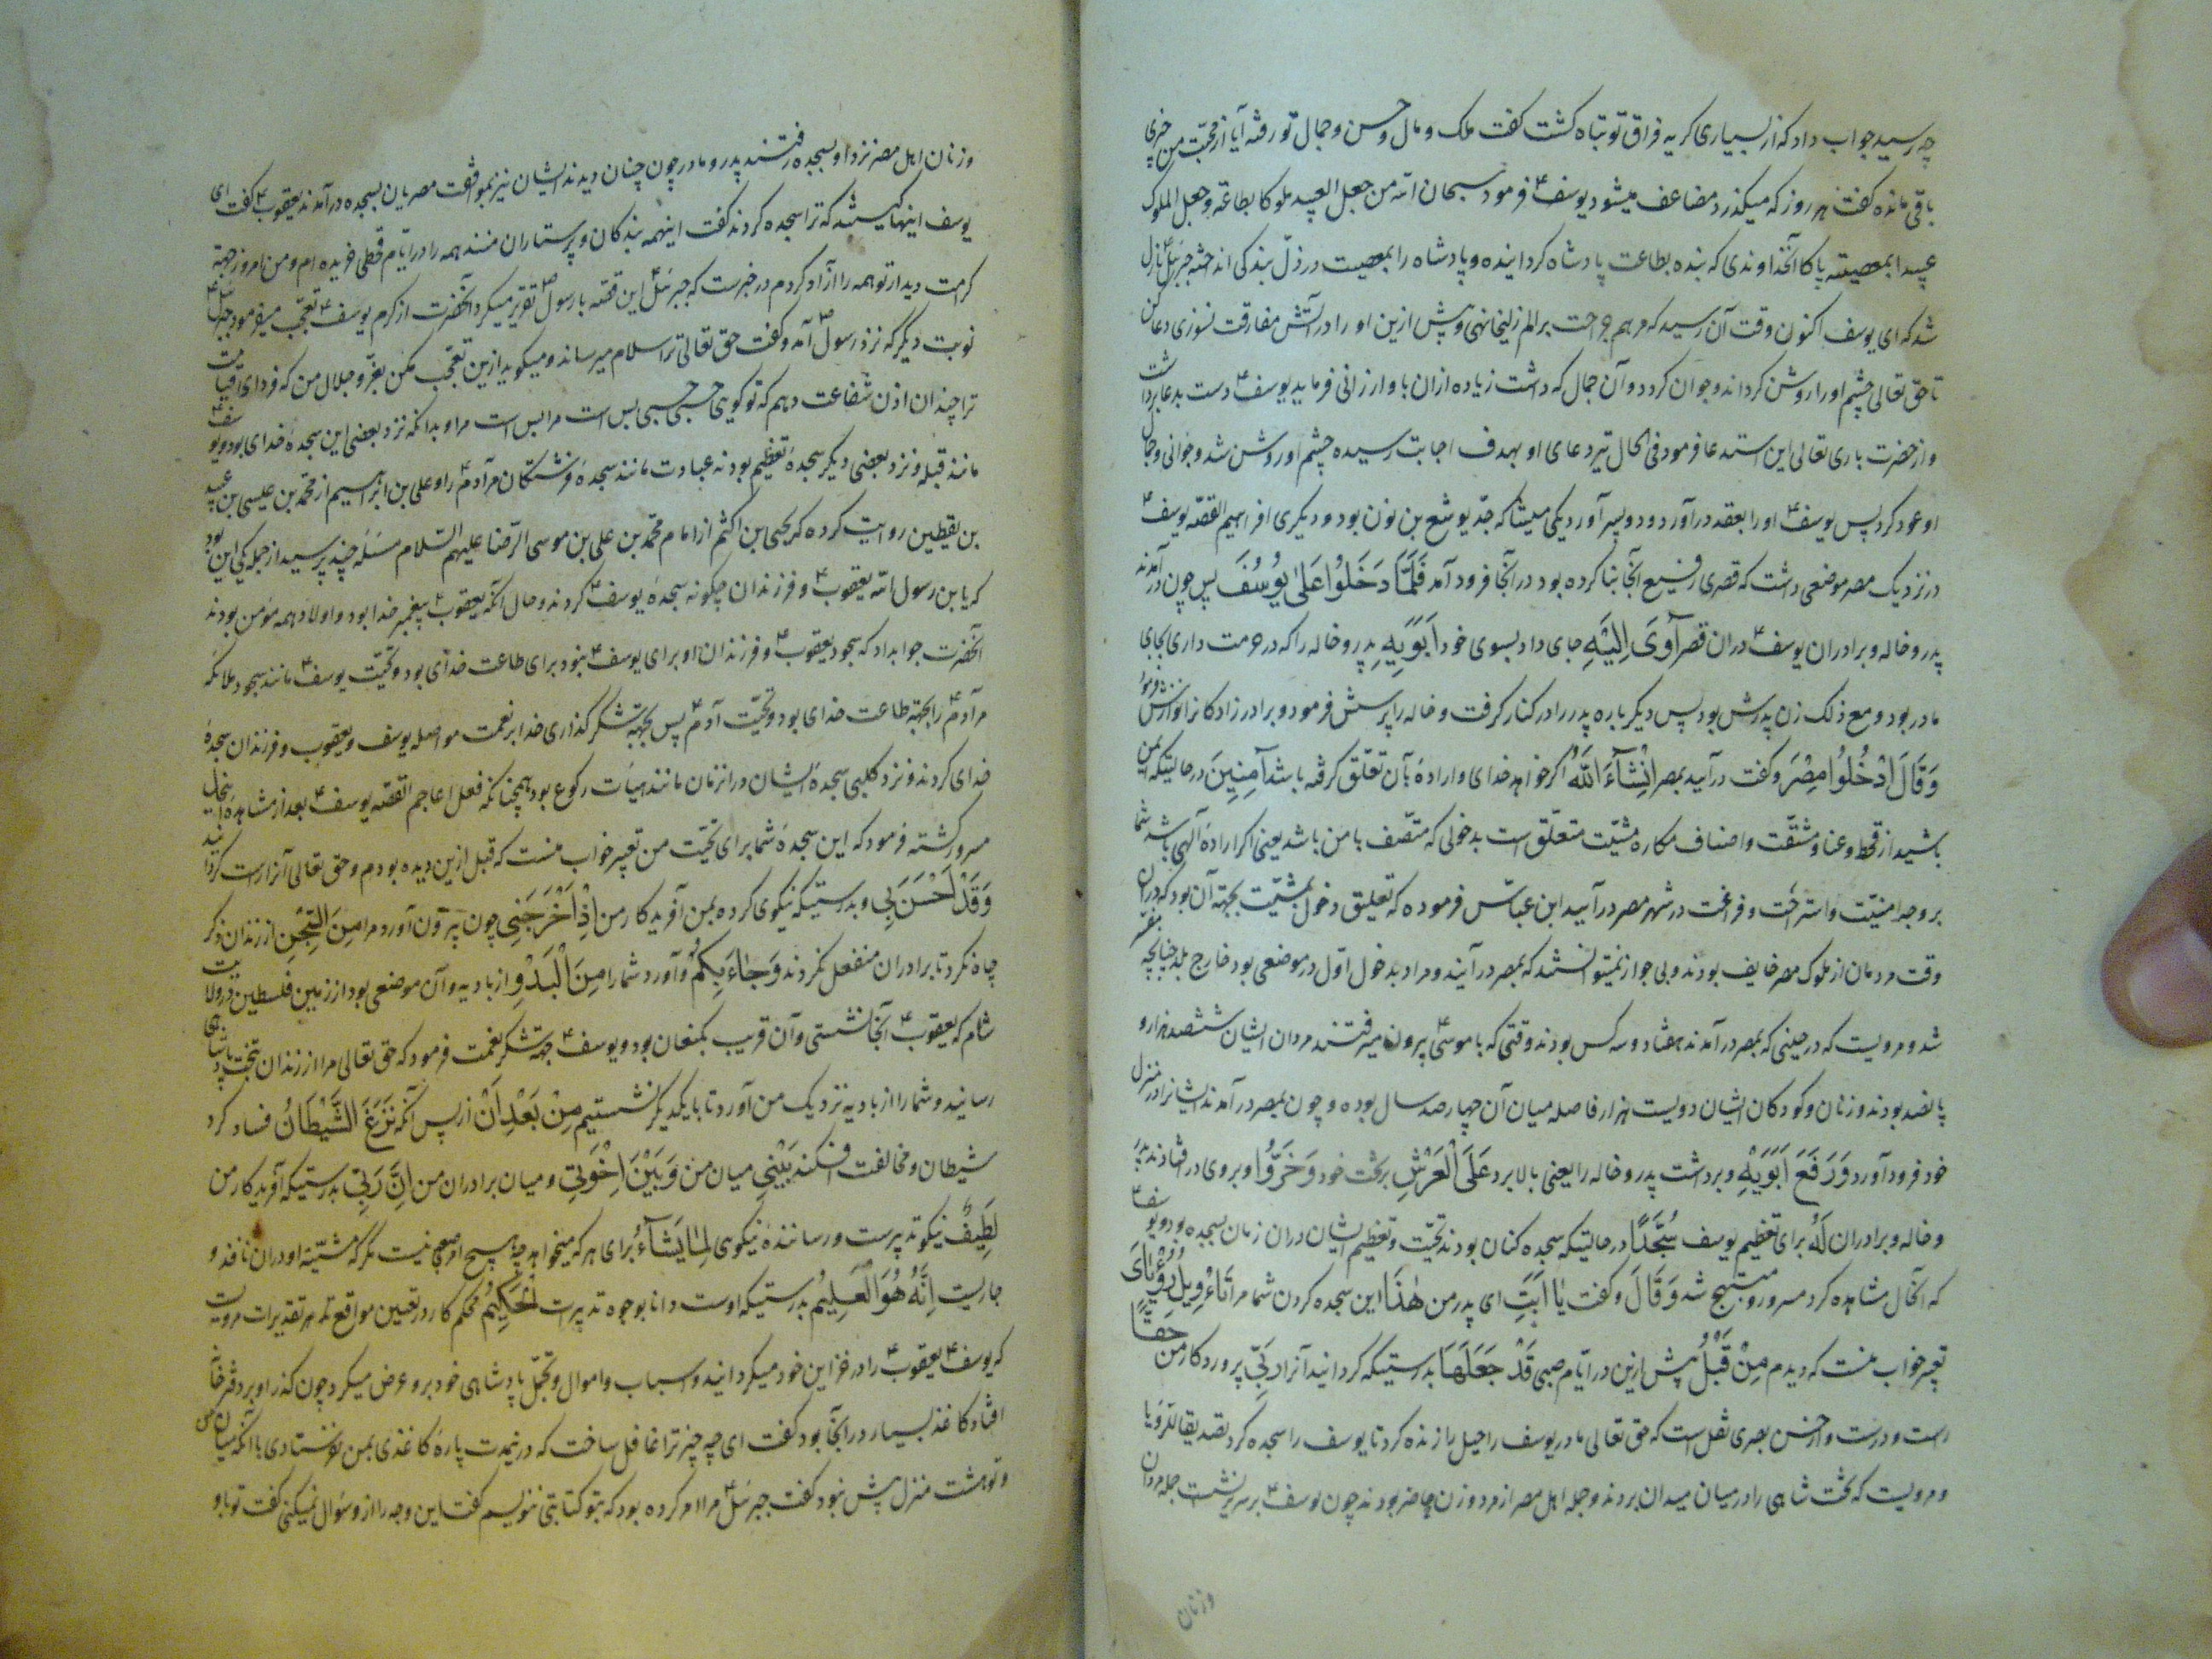 چه رسید جواب داد که از بسیاری کریه فراق تو تباه کشت کفت ملک و مال و حسن و جمال تو رفته آیا از محبت من چیزی
باقی مانده کفت هر روز که میکذرد مضاعف میشود یوسف فرمود سبحان الله من جعل العبید ملوکا بطاعته و جعل الملوک
عبیدا بمعصیته پاکا آنخداوندی که بنده بطاعت پادشاه کرداینده و پادشاه را بمعصیت در ذل بندکی انداخته جبرئیل نازل
شد که ای یوسف اکنون وقت آن رسید که مرهم جراحت بر الم زلیخا نهی و پیش ازین او را در آتش مفارقت نسوزی دعا کن
تا حق تعالی چشم او را روشن کرداند و جوان کردد و آن جمال که داشت زیاده ازان باو ارزانی فرماید یوسف دست بدعا برداشت
و از حضرت باری تعالی این استدعا فرمود فی الحال تیر دعای او بهدف اجابت رسیده چشم او روشن شد و جوانی و جمال
او عود کرد پس یوسف او را بعقد درآورد و دو پسر آورد یکی میشا که جد یوشع بن نون بود و دیکری افراهیم القصه یوسف
در نزدیک مصر موضعی داشت که قصری رفیع آنجا بنا کرده بود در آنجا فرود آمد فَلَمَّا دَخَلُوا عَلَیٰ یُوسُفَ پس چون درآمدند
پدر و خاله و برادران یوسف دران قصر آوَیٰ اِلَیْهِ جای داد بسوی خود اَبَوَیْهِ پدر و خاله را که در حرمت داری بجای
مادر بود و مع ذلک زن پدرش بود پس دیکر باره پدر را در کنار کرفت و خاله را پرسش فرمود و برادر زادکانرا نوازش نمود
وَقَالَ ادْخُلُوا مِصْرَ و کفت درآیید بمصر اِنْشَآءَ اللّٰهُ اکر خواهد خدای و اراده بآن تعلق کرفته باشد آمِنِینَ در حالتیکه ایمن
باشید از قحط و عنا و مشقت و اصناف مکاره مشیت متعلق است بدخولی که متصف بامن باشد یعنی اکر اراده الهی باشد شما
بر وجه امنیت و استراحت و فراغت در شهر مصر درآیید ابن عباس فرموده که تعلیق دخول بمشیت بجهة آن بود که دران
وقت مردمان از ملوک مصر خایف بودند و بی جواز نمیتوانستند که بمصر درآیند و مراد بدخول اول در موضعی بود خارج بلد چنانچه مفسر
شد و مرویست که در حینی که بمصر درآمدند هفتاد و سه کس بودند و وقتی که با موسی بیرون میرفتند مردان ایشان ششصد هزار و
پانصد بودند و زنان و کودکان ایشان دویست هزار فاصله میان آن چهار صد سال بوده و چون بمصر درآمدند ایشانرا در منزل
خود فرود آورد وَرَفَعَ اَبَوَیْهِ و برداشت پدر و خاله را یعنی بالا برد عَلَی الْعَرْشِ بر تخت خود وَخَرُّوا و بروی در افتادند پدر
و خاله و برادران لَهُ برای تعظیم یوسف سُجَّدًا در حالتیکه سجده کنان بودند تحیت و تعظیم ایشان دران زمان سجده بود و یوسف
که آنحال مشاهده کرد مسرور و مبتهج شد وَقَالَ و کفت یَا اَبَتِ ای پدر من هٰذَا این سجده کردن شما مرا تَاْوِیلُ رُؤْیَایَ
تعبیر خواب منست که دیدم مِنْ قَبْلُ پیش ازین در ایام صبی قَدْ جَعَلَهَا بدرستیکه کردانید آنرا رَبِّی پروردکار من حَقًّا
راست و درست و از حسن بصری نقل است که حق تعالی مادر یوسف راحیل را زنده کرد تا یوسف را سجده کرد تصدیقا للرؤیا
و مرویست که تخت شاهی را در میان میدان بردند و جمله اهل مصر از مرد و زن حاضر بودند چون یوسف بر سریر نشست جمله مردان
وزنان
و زنان اهل مصر نزد او بسجده رفتند پدر و مادر چون چنان دیدند ایشان نیز بموافقت مصریان بسجده درآمدند یعقوب کفت ای
یوسف اینها کیستند که ترا سجده کردند کفت اینهمه بندکان و پرستاران منند همه را در ایام قحطی خریده ام و من امروز جهة
کرامت دیدار تو همه را آزاد کردم در خبرست که جبرئیل این قصه با رسول تقریر میکرد آنحضرت از کرم یوسف تعجب میفرمود جبرئیل
نوبت دیکر که نزد رسول آمد و کفت حق تعالی ترا سلام میرساند و میکوید ازین تعجب مکن بعز و جلال من که فردای قیامت
ترا چندان اذن شفاعت دهم که تو کویی حسبی حسبی بس است مرا بس است مرا و بدانکه نزد بعضی این سجده خدای بود و یوسف
مانند قبله و نزد بعضی دیکر سجده تعظیم بود نه عبادت مانند سجده فرشتکان مر آدم را و علی بن ابراهیم از محمد بن عیسی بن عبید
بن یقطین روایت کرده که یحیی بن اکثم از امام محمد بن علی بن موسی الرضا علیهم السلام مسئله چند پرسید از جمله یکی این بود
که یابن رسول الله یعقوب و فرزندان چکونه سجده یوسف کردند و حال آنکه یعقوب پیغمبر خدا بود و اولاد همه مؤمن بودند
آنحضرت جوابداد که سجود یعقوب و فرزندان او برای یوسف نبود برای طاعت خدای بود و تحیت یوسف مانند سجود ملائکه
مر آدم را بجهة طاعت خدای بود و تحیت آدم پس بجهة شکرکذاری خدا بر نعمت مواصله یوسف و یعقوب و فرزندان سجده
خدای کردند و نزد کلبی سجده ایشان درانزمان مانند هیأت رکوع بود همچنانکه فعل اعاجم القصه یوسف بعد از مشاهده اینحال
مسرور کشته فرمود که این سجده شما برای تحیت من تعبیر خواب منست که قبل ازین دیده بودم و حق تعالی آنرا راست کردانید
وَقَدْ اَحْسَنَ بِی و بدرستیکه نیکوی کرده بمن آفریدکار من اِذْ اَخْرَجَنِی چون بیرون آورد مرا مِنَ السِّجْنِ از زندان ذکر
چاه نکرد تا برادران منفعل نکردند وَجَاءَ بِکُمْ و آورد شما را مِنَ الْبَدْوِ از بادیه و آن موضعی بود از زمین فلسطین در ولایت
شام که یعقوب آنجا نشستی و آن قریب بکنعان بود و یوسف جهة شکر نعمت فرمود که حق تعالی مرا از زندان بتخت پادشاهی
رسانید و شما را از بادیه نزدیک من آورد تا با یکدیکر نشستیم مِنْ بَعْدِ اَنْ از پس آنکه نَزَغَ الشَّیْطَانُ فساد کرد
شیطان و مخالفت افکند بَیْنِی میان من وَبَیْنَ اِخْوَتِی و میان برادران من اِنَّ رَبِّی بدرستیکه آفریدکار من
لَطِیفٌ نیکو تدبیرست و رساننده نیکوی لِمَا یَشَآءُ برای هر که میخواهد چه هیچ صعبی نیست مکر که مشیت او دران نافذ و
جاریست اِنَّهُ هُوَ الْعَلِیمُ بدرستیکه اوست دانا بوجوه تدبیرات الْحَکِیمُ محکم کار در تعیین مواقع تقدیرات مرویست
که یوسف یعقوب را در خزاین خود میکردانید و اسباب و اموال و تجمل پادشاهی خود برو عرض میکرد چون کذر او بر دفترخانه
افتاد کاغذ بسیار در آنجا بود کفت ای چه چیز ترا غافل ساخت که درنمدت پاره کاغذی بمن نفرستادی با آنکه میان من
و تو هشت منزل بیش نبود کفت جبرئیل مرا امر کرده بود که بتو کتابتی ننویسم کفت این وجه را ازو سؤال نمیکنی کفت تو باو